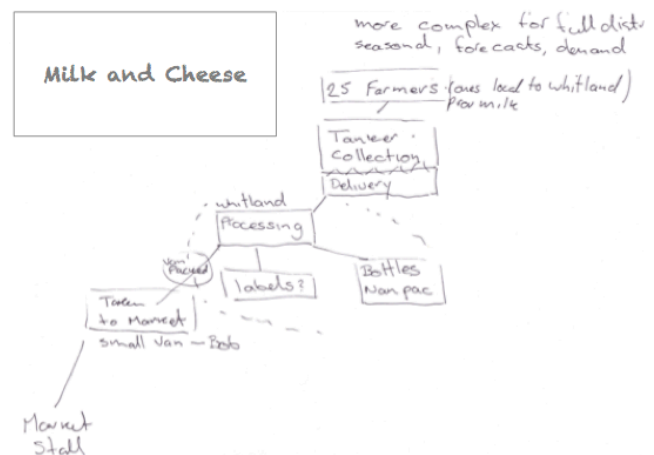 more complex for full distr
seasonal, forecasts, demand
Milk and Cheese
25 Farmers (ones local to whitland)
milk
Tanker
Collection
Delivery
whitland
Processing
Packed
labels?
Bottles
Nanpac
Taken
to Market
small van - Bob
Market
Stall